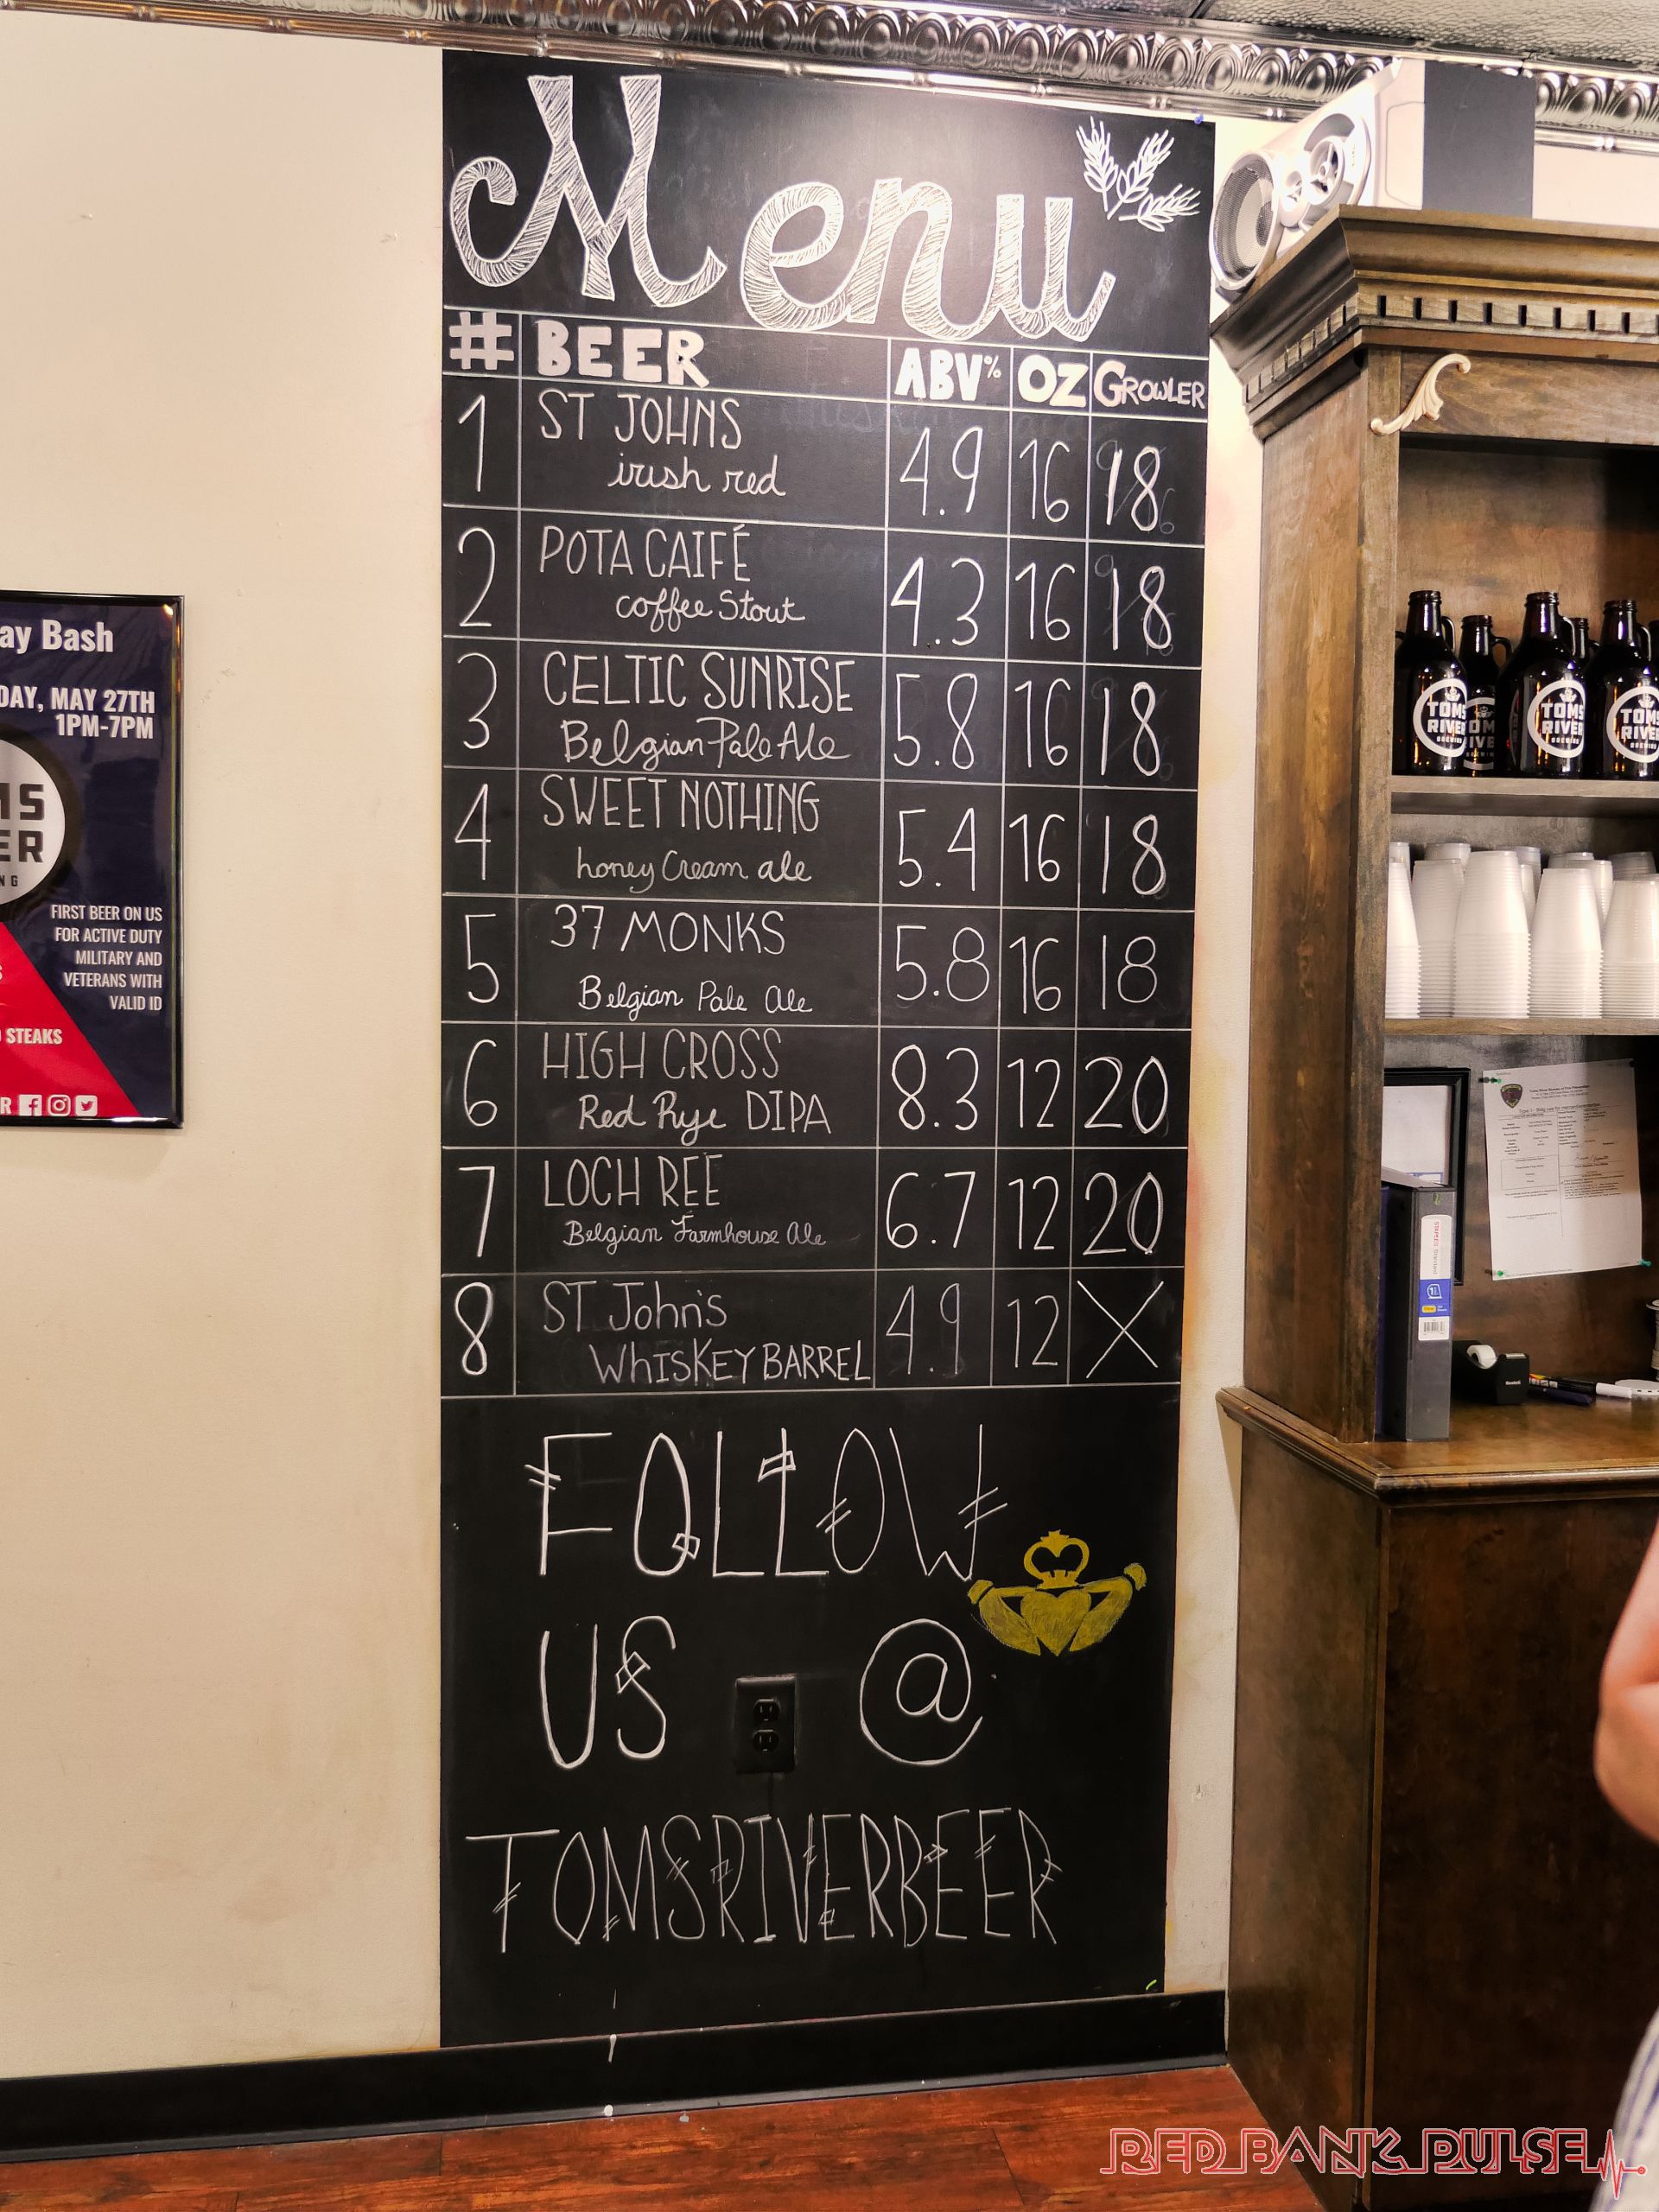 Menu
# BEER ABV% OZ GROWLER
1 ST JOHNS 4.9 16 18
irish red
2 POTA CAIFÉ 4.3 16 18
coffee Stout
3 CELTIC SUNRISE 5.8 16 18
Belgian Pale Ale
4 SWEET NOTHING 5.4 16 18
honey Cream ale
5 37 MONKS 5.8 16 18
Belgian Pale Ale
6 HIGH CROSS 8.3 12 20
Red Rye DIPA
7 LOCH REE 6.7 12 20
Belgian Farmhouse Ale
8 ST John's 4.9 12 X
WHISKEY BARREL
FOLLOW
US @
TOMSRIVERBEER
ay Bash
DAY, MAY 27TH
1PM-7PM
MS
ER
NG
FIRST BEER ON US
FOR ACTIVE DUTY
MILITARY AND
VETERANS WITH
VALID ID
STEAKS
R
TOMS
RIVER
BREWING
TOMS
RIVER
BREWING
TOMS
RIVER
BREWING
RED BANK PULSE